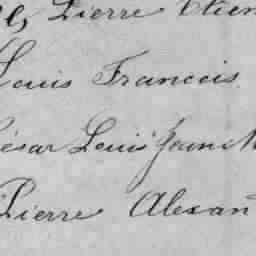 Pierre Etien
Louis Francois
César Louis Jean M
Pierre Alexan